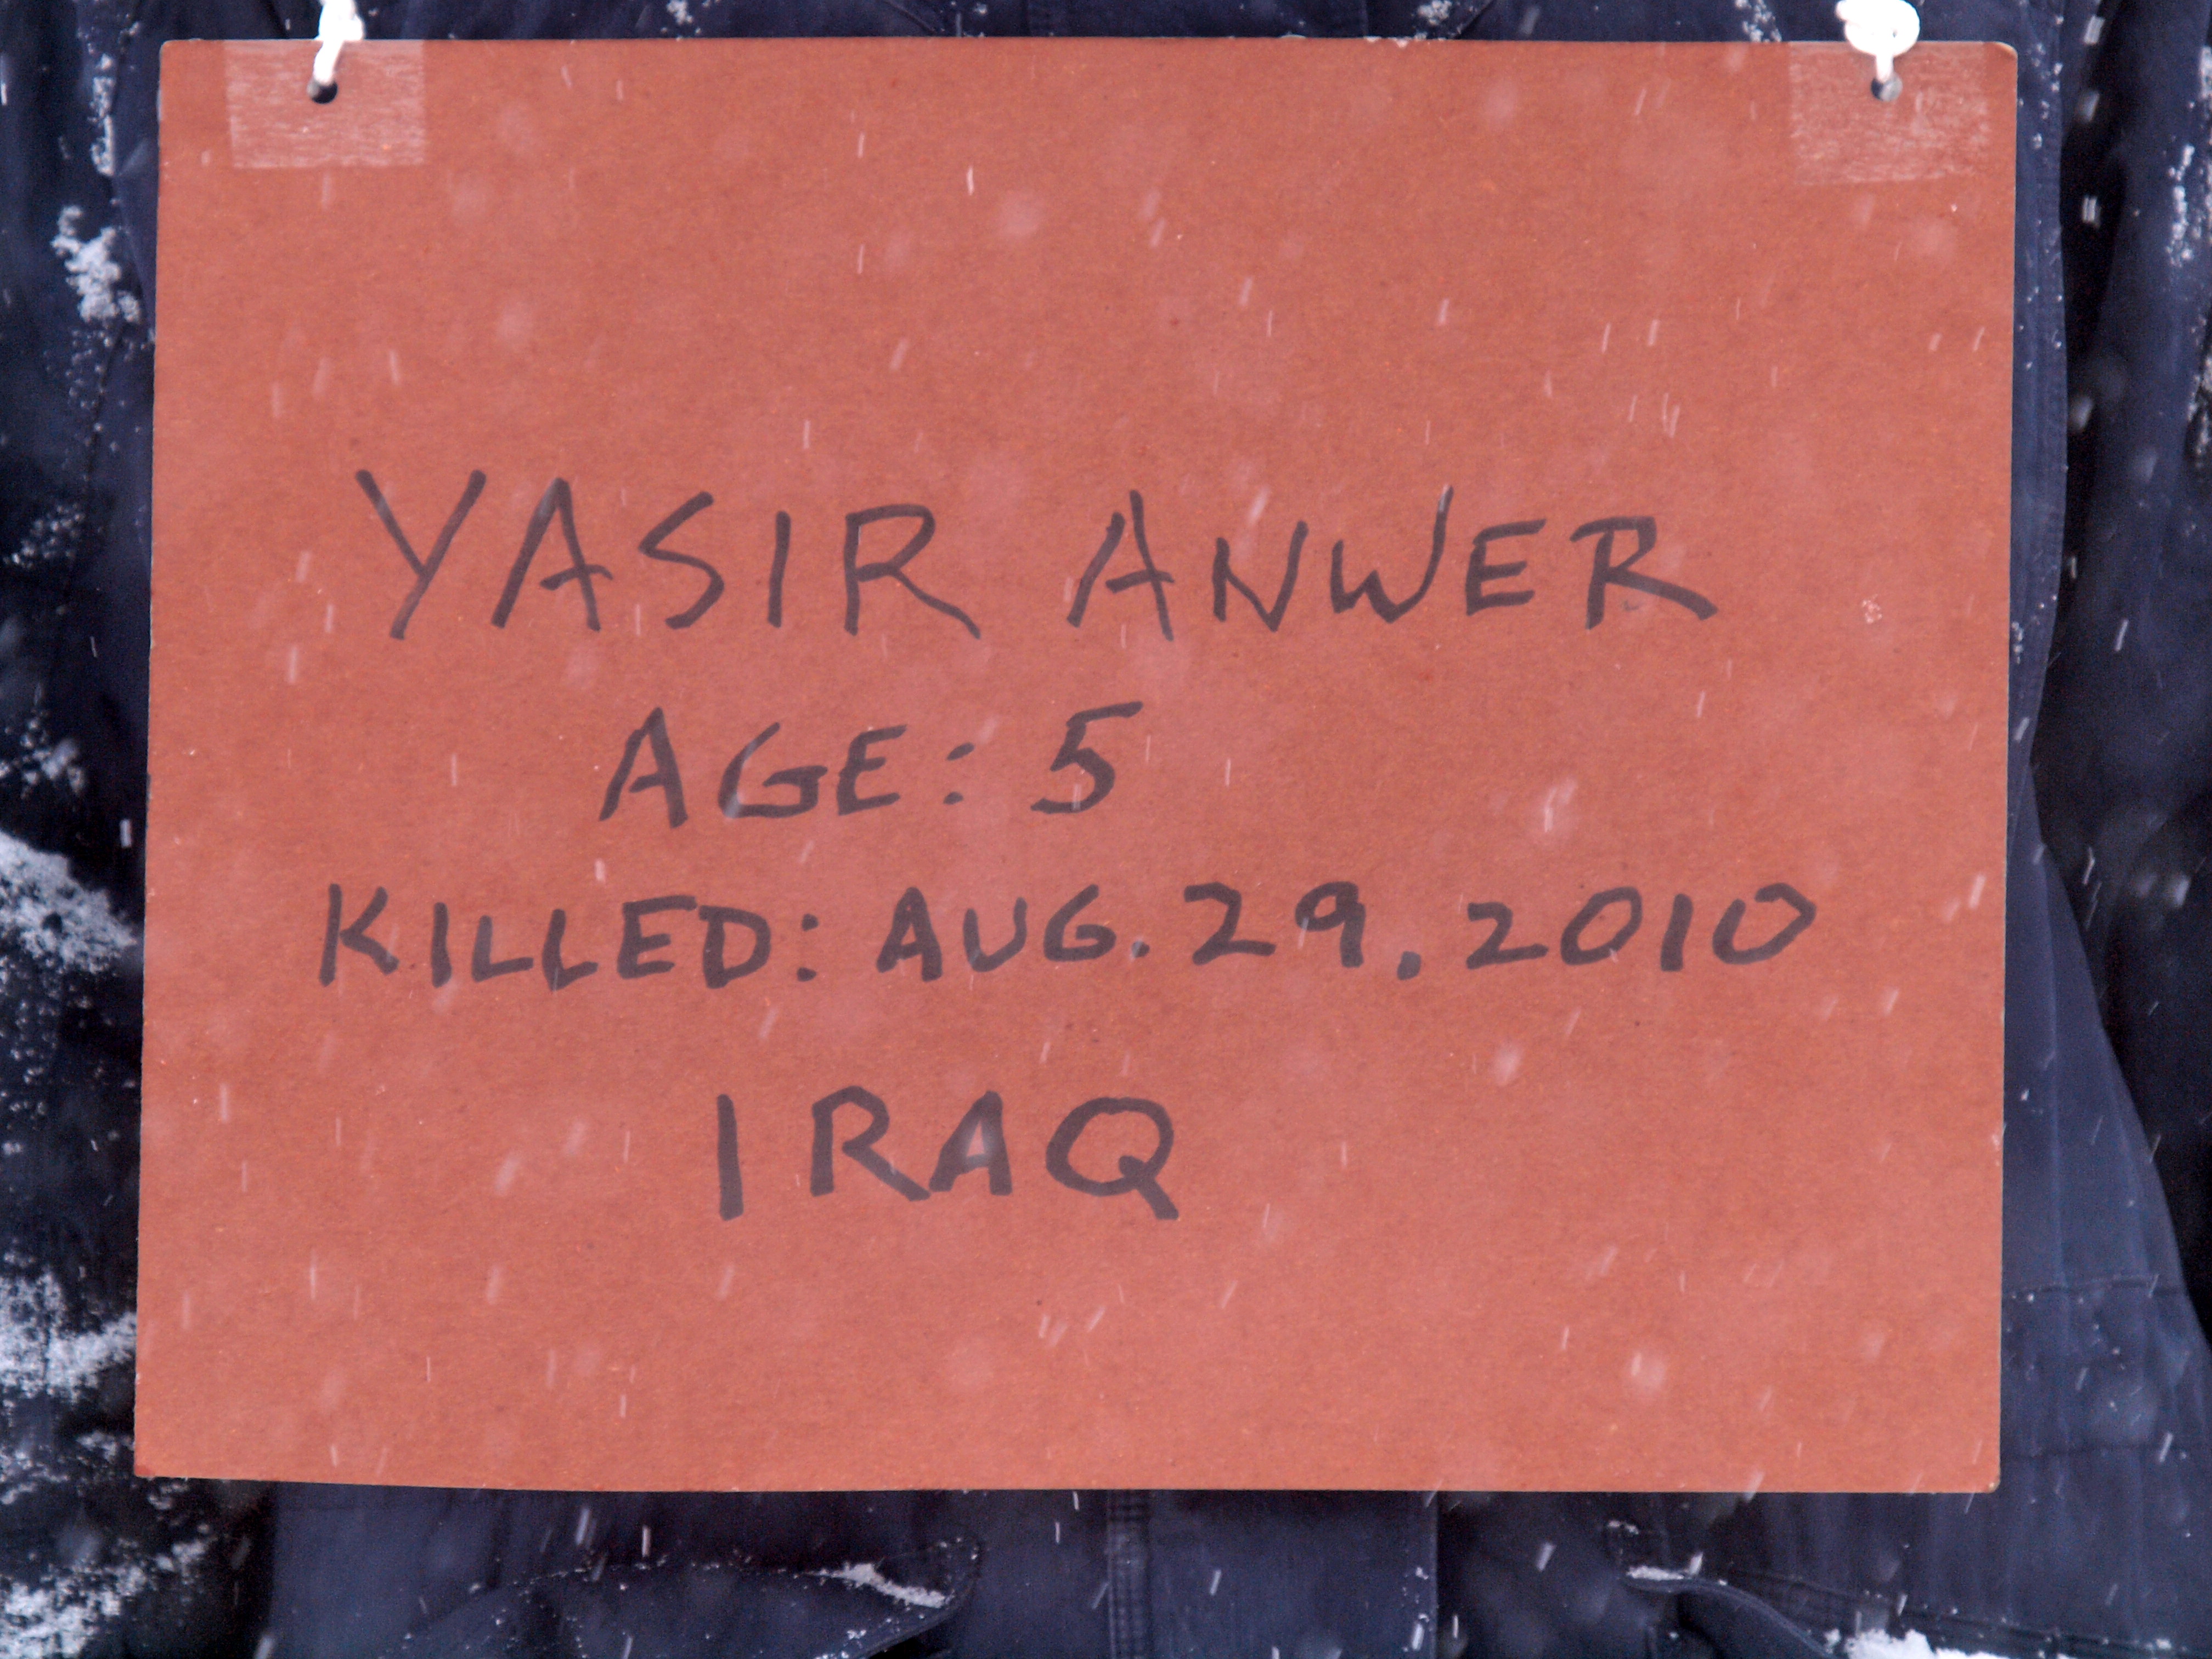 YASIR ANWER
AGE: 5
KILLED: AUG. 29, 2010
IRAQ